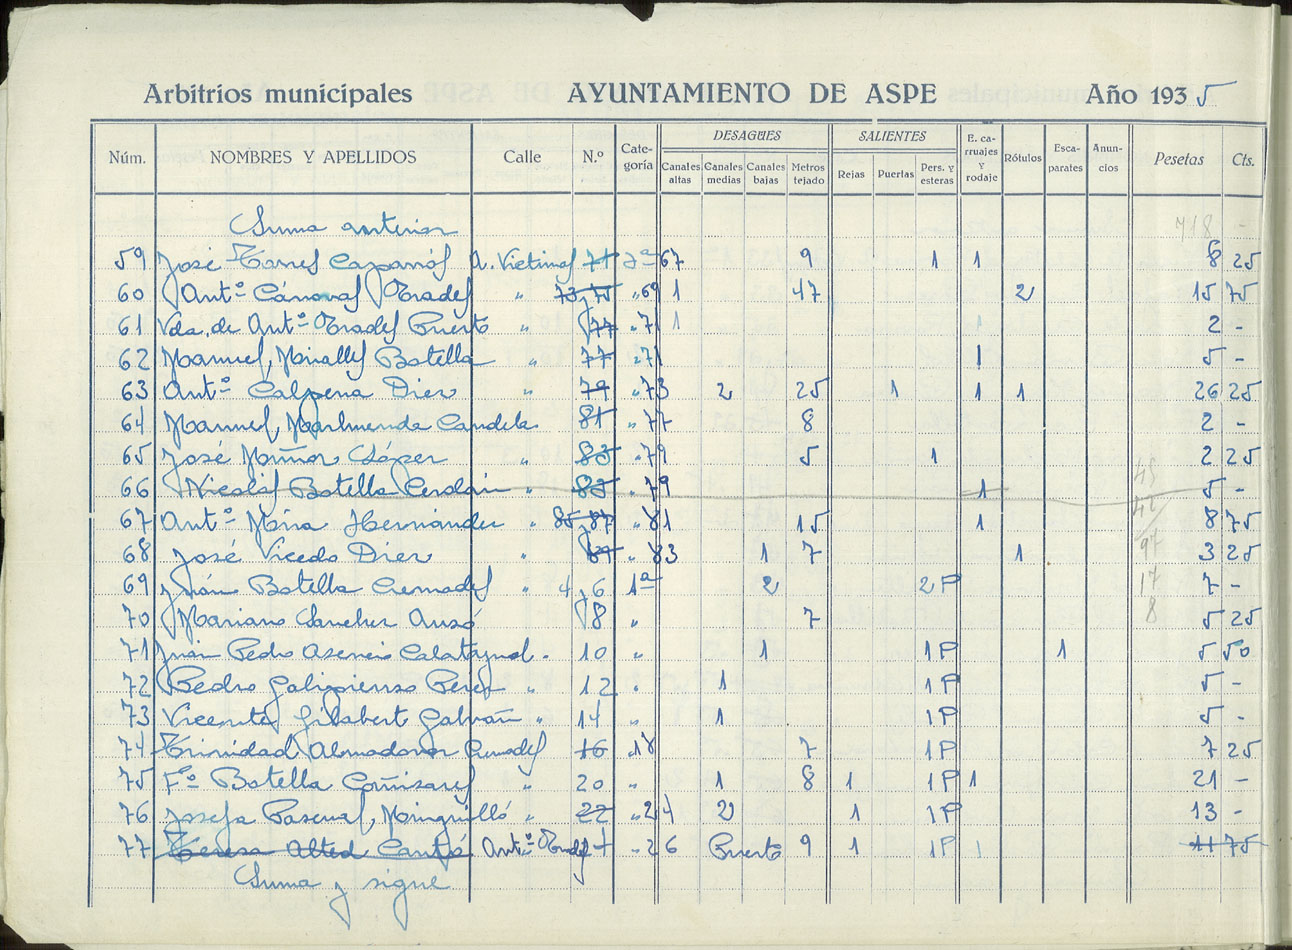 Arbitrios municipales AYUNTAMIENTO DE ASPE Año 1935
Núm. NOMBRES Y APELLIDOS Calle N.º Cate-goría DESAGÜES Canales altas Canales medias Canales bajas Metros tejado SALIENTES Rejas Puertas Pers. y esteras E. ca-rruajes y rodaje Rótulos Esca-parates Anun-cios Pesetas Cts.
Suma anterior 718 -
59 José Torres Caparrós A. Victimas 71 2ª 67 9 1 1 8 25
60 Antº Cánovas Prades " 73 y 75 " 69 1 47 2 15 75
61 Vda. de Antº Prades Puerto " 77 " 71 1 1 2 -
62 Manuel Miralles Botella " 77 " 71 1 5 -
63 Antº Calpena Diez " 79 " 73 2 25 1 1 1 26 25
64 Manuel Candela 81 " 77 8 2 -
65 José Muñoz López " 83 " 79 5 1 2 25
66 Nicolás Botella Cerdán " 85 " 79 1 5 - 45
67 Antº Mira Hernández " 85 y 87 " 81 15 1 8 75
68 José Vicedo Diez " 89 " 83 1 7 1 3 25 97
69 Juán Botella Cremades " 4 y 6 1ª 2 2 P 7 - 17
70 Mariano Sanchez 8 " 7 5 25 8
71 Juán Pedro Asencio Calatayud " 10 " 1 1 P 1 5 50
72 Pedro Galipienso Perez " 12 " 1 1 P 5 -
73 Vicente Gilabert Galván " 14 " 1 1 P 5 -
74 Trinidad Almodovar Cremades 16 " 18 7 1 P 7 25
75 Fº Botella Cañizares " 20 " 1 8 1 1 P 1 21 -
76 Josefa Pascual Minguilló " 22 " 24 2 1 1 P 13 -
77 Teresa Alted Cantó Antº Prades 4 " 26 Puerto 9 1 1 P 1 11 75
Suma y sigue